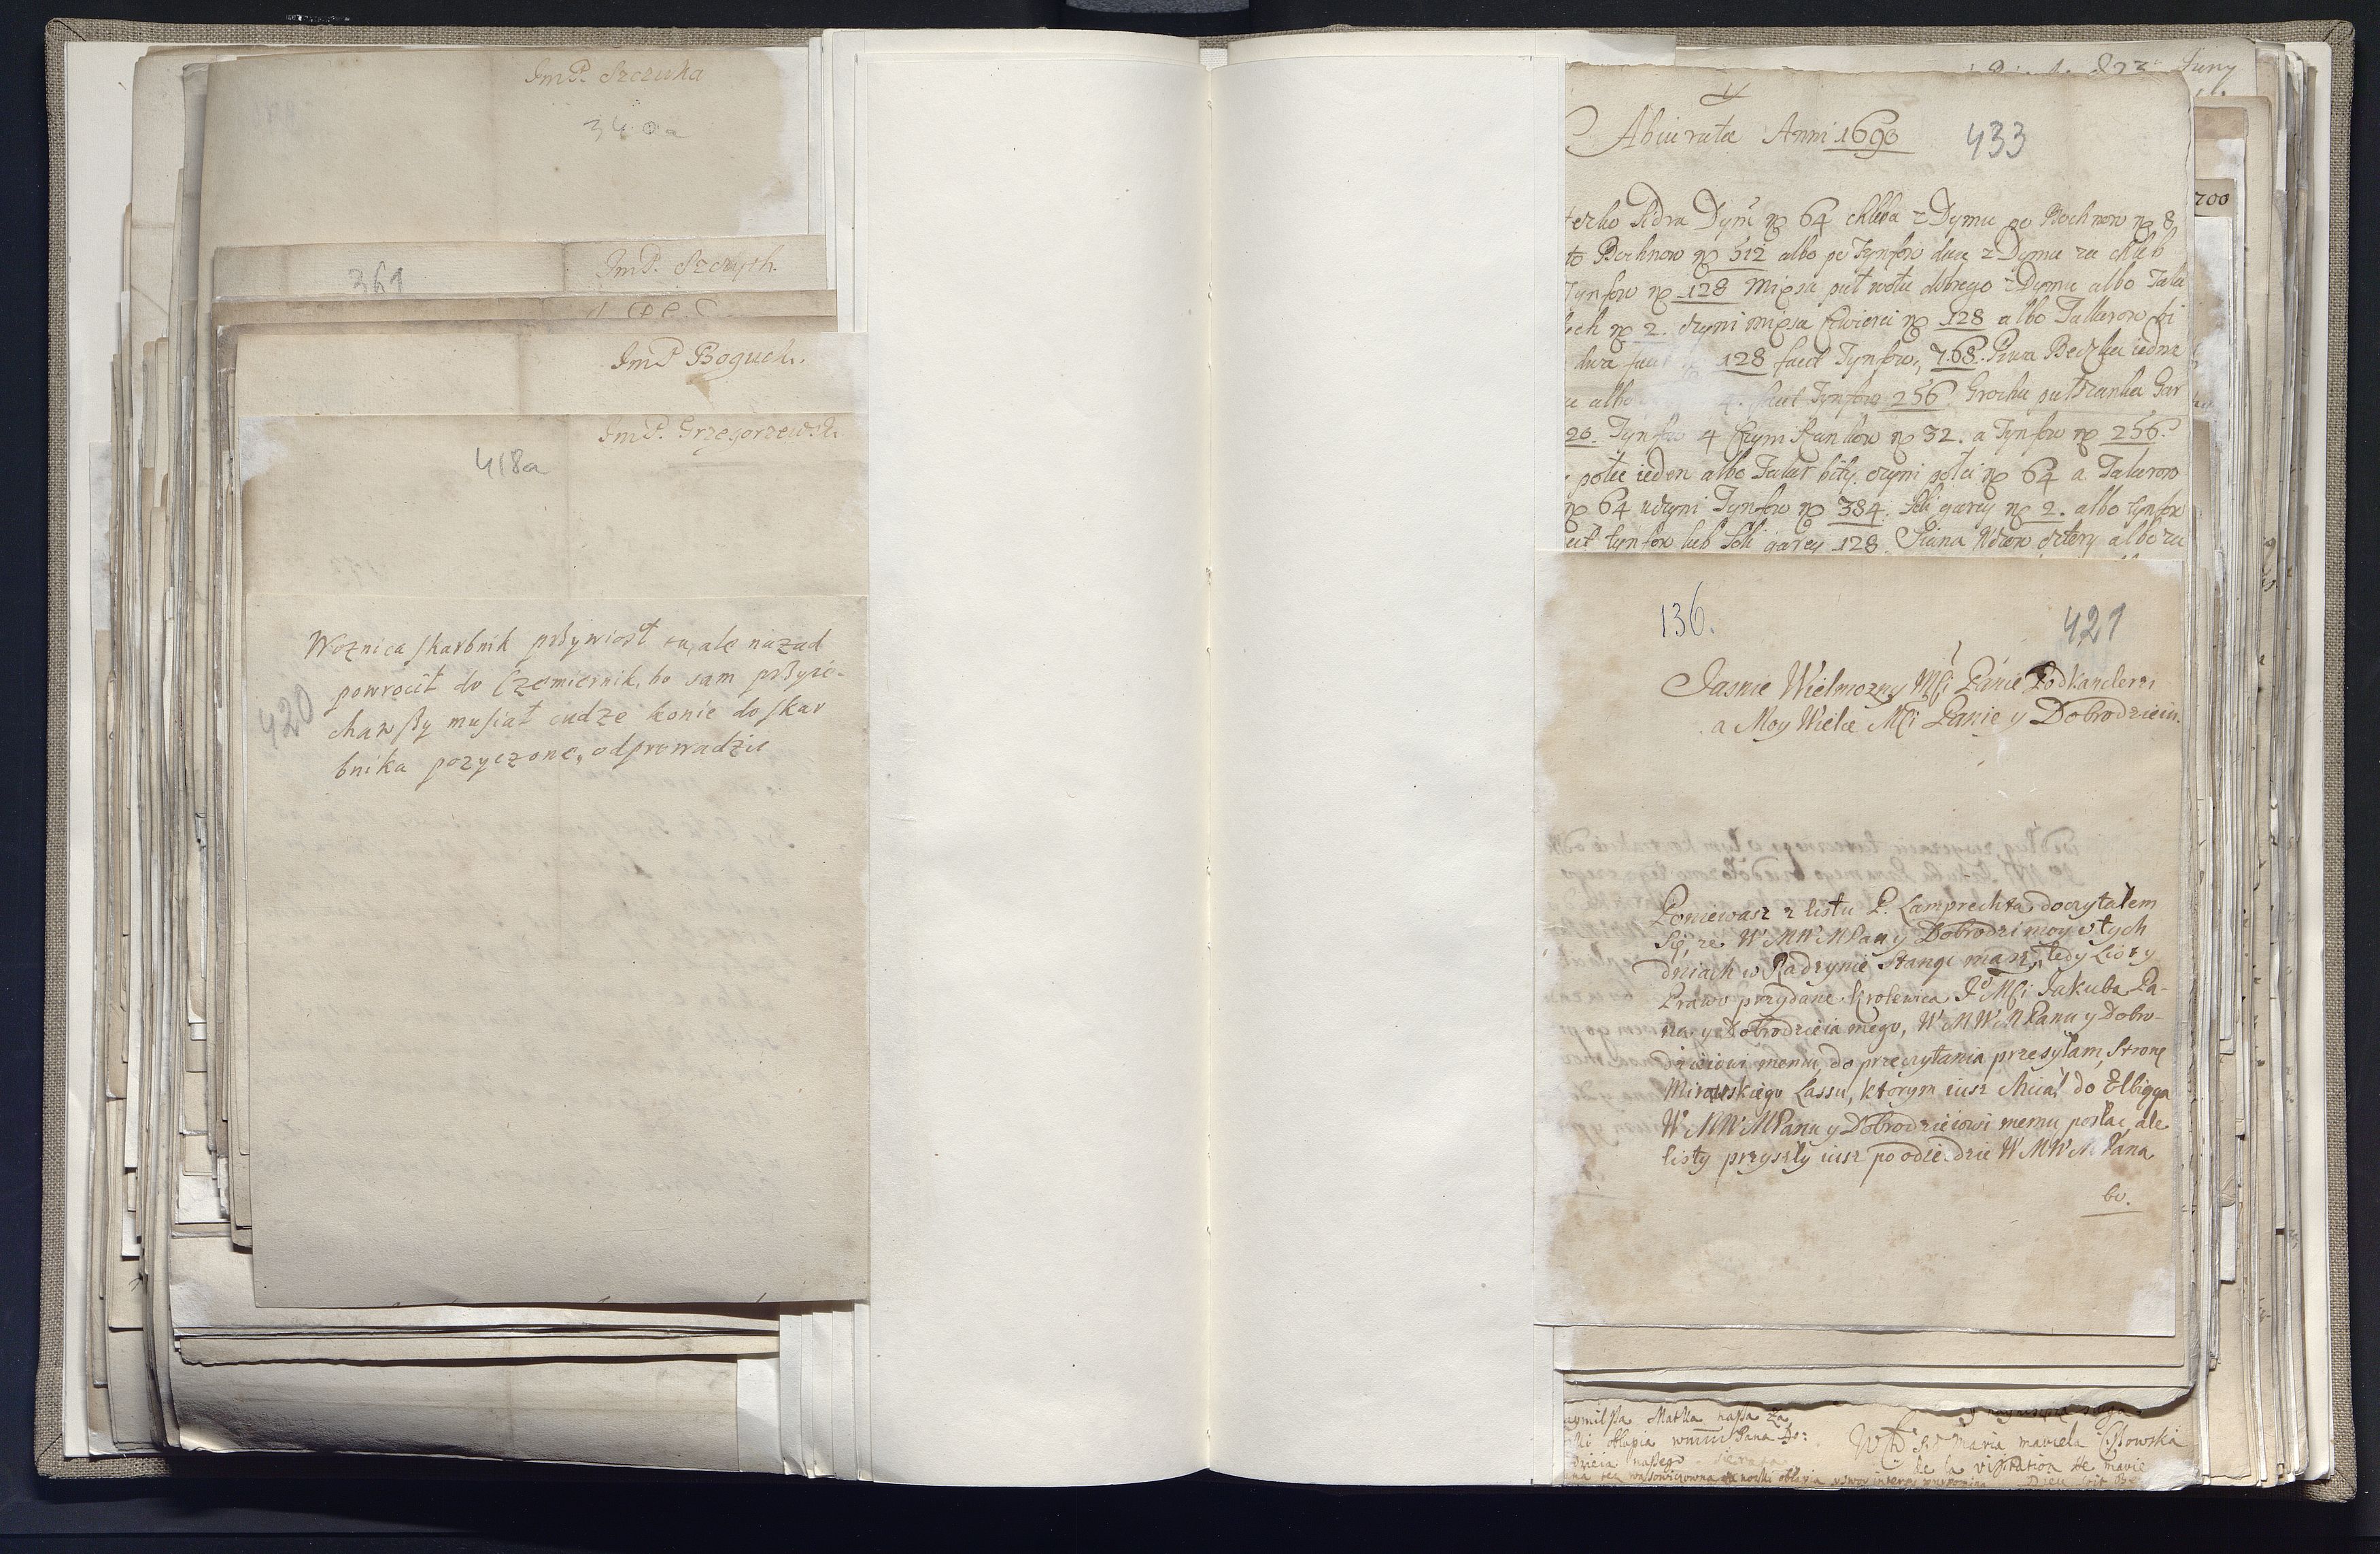 ImP. Szczuka
340a
361
ImP. Szczyth.
ImP Boguch.
ImP. Grzegorzewsk
418a
420
Woznica skarbnik przywiozł ale nazad
powrocił do Czemiernik, bo sam przyie-
chawszy musiał cudze konie do skar
bnika pozyczone, odprowadzic
23 Juny
200
Abiurata Anni 1690
433
Dym no 64 chleba z Dymu po Bochnow no 8
to Bochnow no 512 albo po Tynfow dwa z Dymu za chleb
Tynfow no 128 Mięsa puł wołu dobrego z Dymu albo Tala
no 2. czyni mięsa cwierci no 128 albo Tallerow bi
dwa 128 facit Tynfow, 768. Piwa Beczka iedna
albo facit Tynfow 256 Grochu puł Szanka Gar
20. Tynfow 4 czyni Szankow no 32. a Tynfow no 256.
połec ieden albo Talar bity. czyni połci no 64 a Talerow
no 64 uczyni Tynfow no 384. Soli garcy no 2. albo tynfow
tynfow lub Soli garcy 128. Siana Wozow cztery albo za
136.
421
Jasnie Wielmozny Mci Panie Podkanclerzi
a Moy Wielce Mci Panie y Dobrodzieiu.
Poniewasz z listu P. Lamprechta doczytałem
się, ze WMWMPan y Dobrodzi moy w tych
dniach w Radzynie stanąc masz, tedy
Prawo przydane Krolewica JoMci Jakuba Pa-
na y Dobrodzieia mego, WMWMPanu y Dobro-
dzieiowi memu, do przeczytania przesyłam, stronę
Mirowskiego Lassu, ktorym iusz chciał do Elbiąga
WMWMPanu y Dobrodzieiowi memu posłac, ale
listy przyszły iusz po odieździe WMWMPana
bo.
Matka nasza za
obłapia Pana Do:
dzieia naszego
Maria
de la visitation de marie